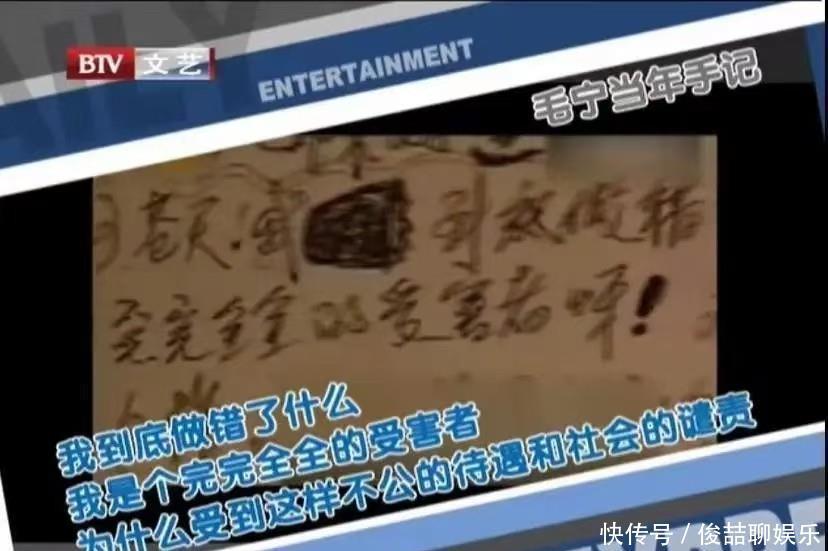 BTV 文艺
ENTERTAINMENT
毛宁当年手记
苍天!我 到底做错
完完全全的受害者呀!
我到底做错了什么
我是个完完全全的受害者
为什么受到这样不公的待遇和社会的谴责
快传号 / 俊喆聊娱乐